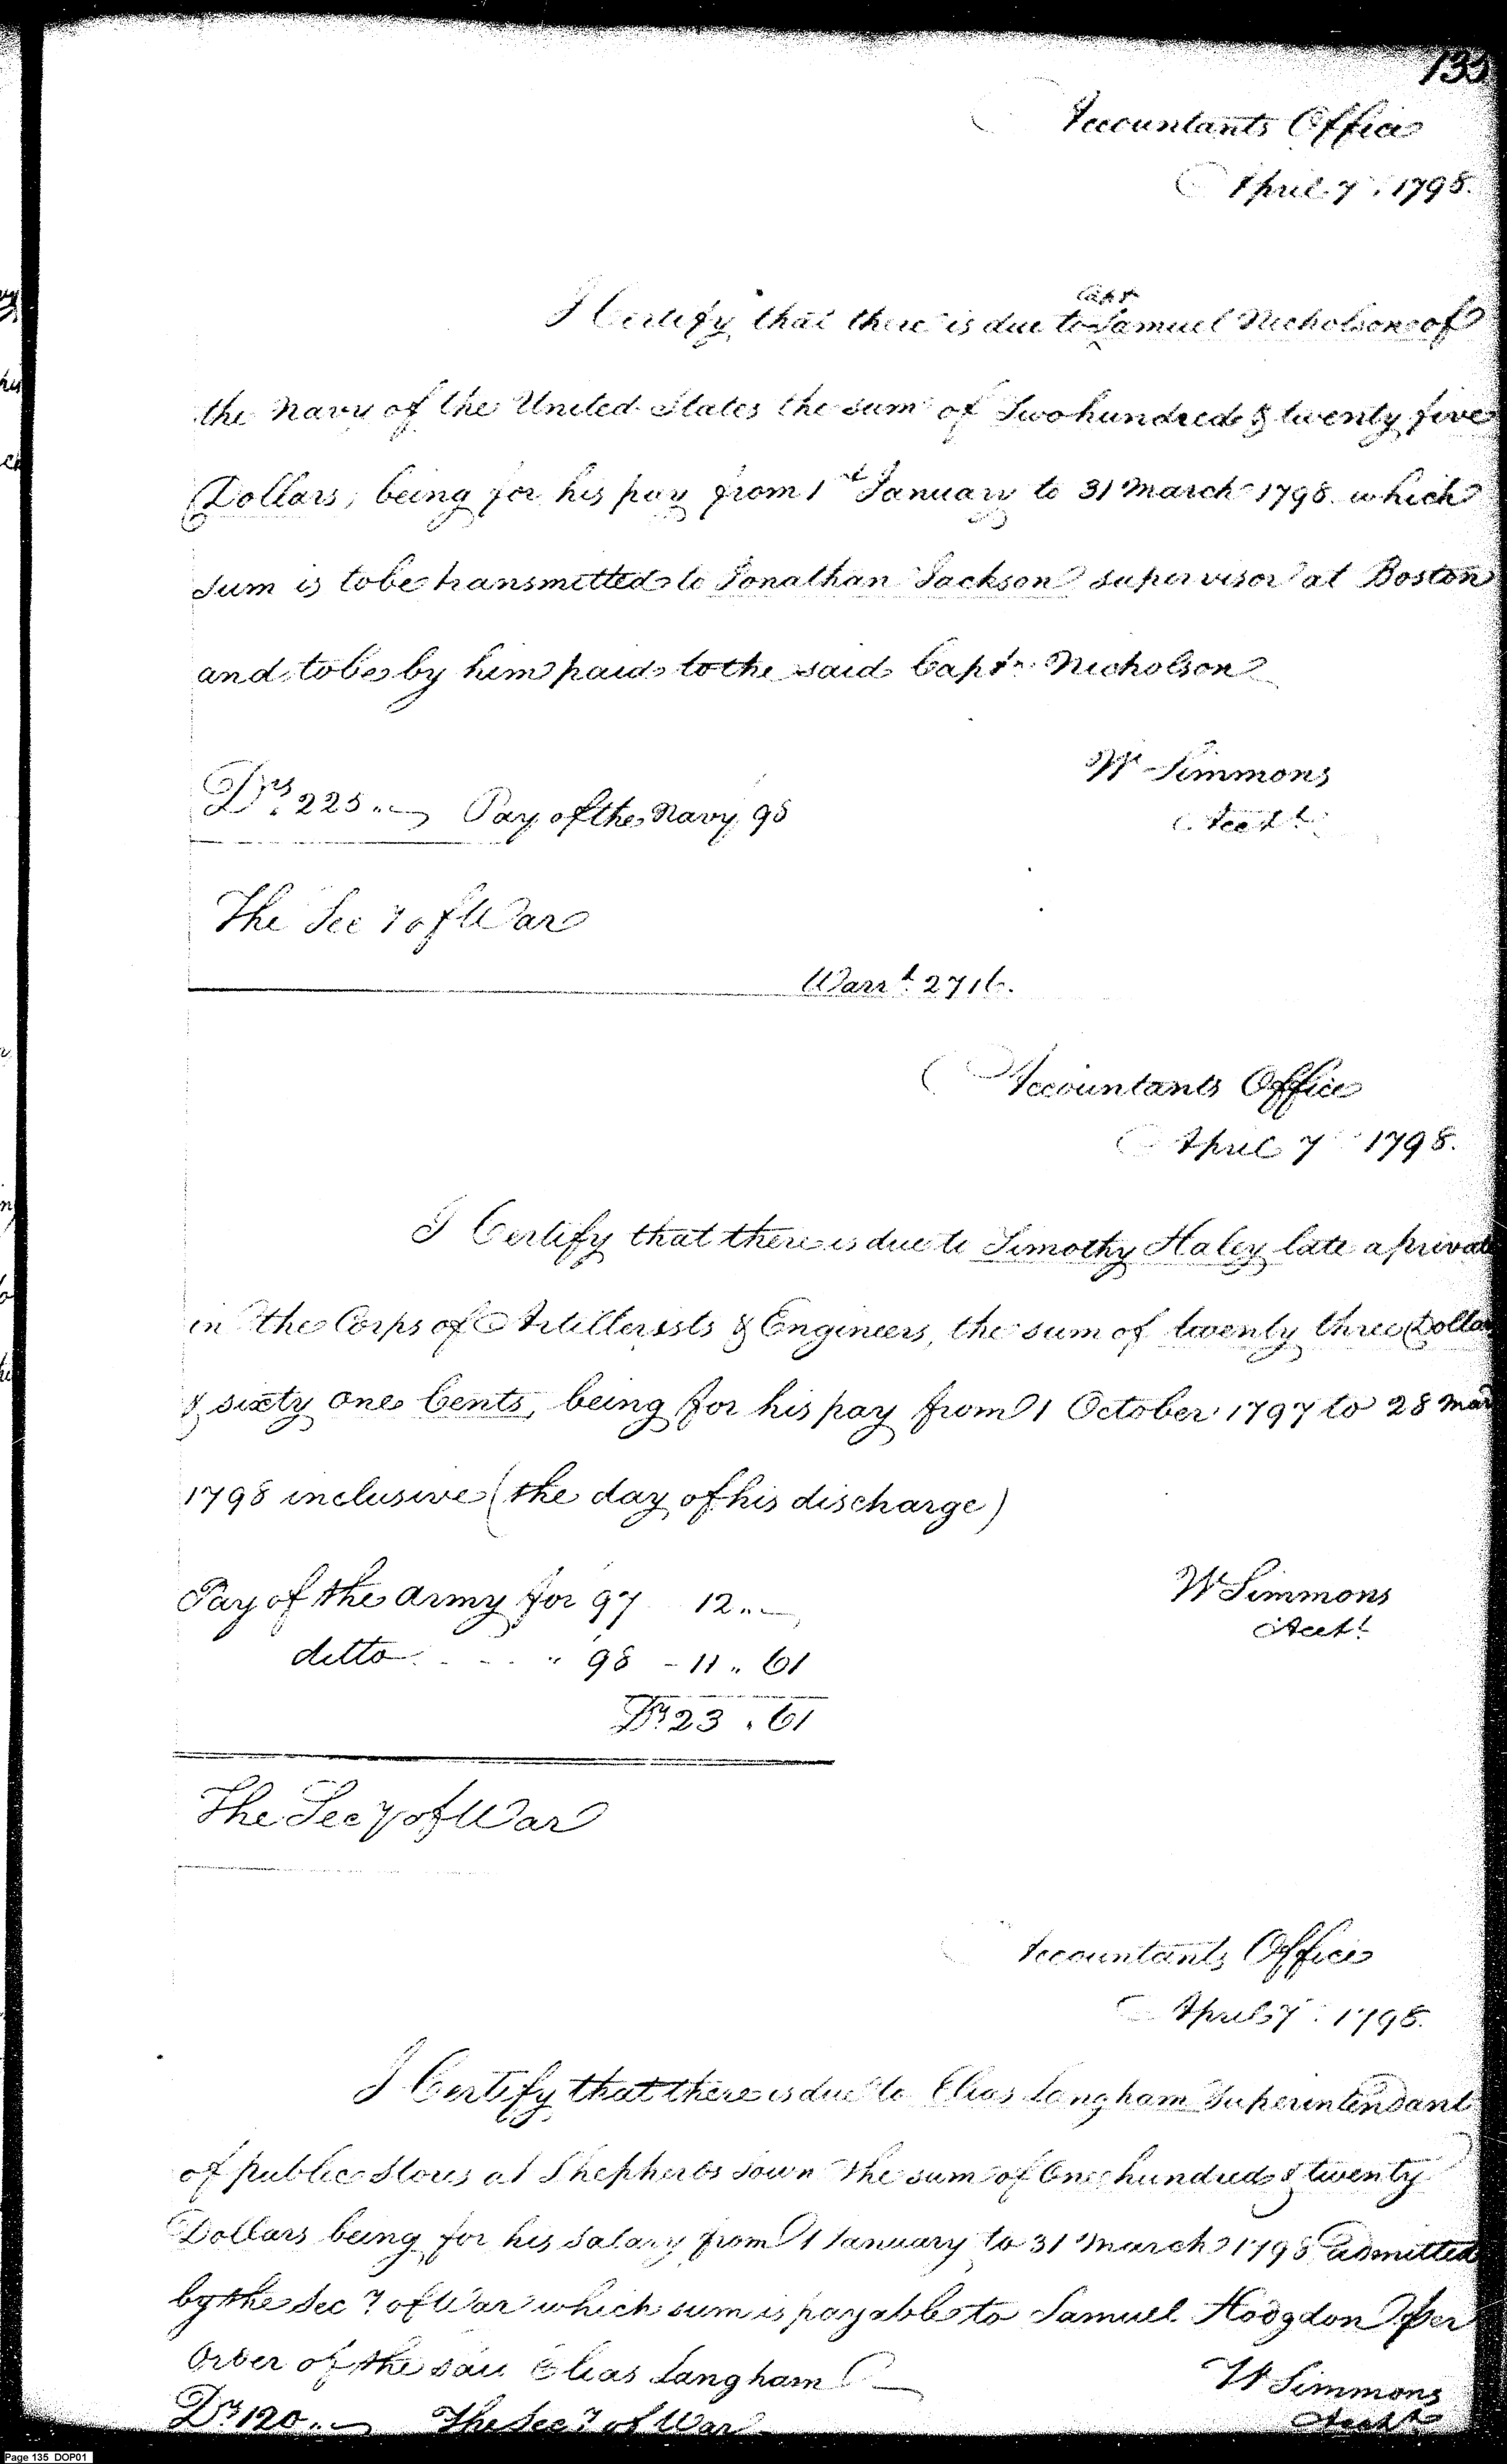 135
Accountants Office
April 7th 1798.
Capt
I Certify that there is due to Samuel Nicholson of
the Navy of the United States the sum of Two hundred & twenty five
Dollars, being for his pay from 1st January to 31 March 1798 which
sum is to be transmitted to Jonathan Jackson supervisor at Boston
and to be by him paid to the said Captn Nicholson
W Simmons
Drs 225 .. Pay of the Navy 98
Acctt
The Secy of War
Warrt 2716.
Accountants Office
April 7 1798.
I Certify that there is due to Timothy Haley late a privat
in the Corps of Artillerists & Engineers, the sum of twenty three Dolla
& sixty one Cents, being for his pay from 1 October 1797 to 28 Mar
1798 inclusive (the day of his discharge)
W Simmons
Pay of the Army for 97 12 ..
Acctt
ditto . - - . " 98 - 11 " 61
Drs 23 . 61
The Secy of War
Accountants Office
April 7 1798.
I Certify that there is due to Elias Langham Superintendant
of public Stores at Shepherds Town the sum of One hundred & twenty
Dollars being for his Salary from 1 January to 31 March 1798 admitted
by the Secy of War which sum is payable to Samuel Hodgdon per
Order of the said Elias Langham
W Simmons
Drs 120 .. The Secy of War
Acctt
Page 135 DOP01